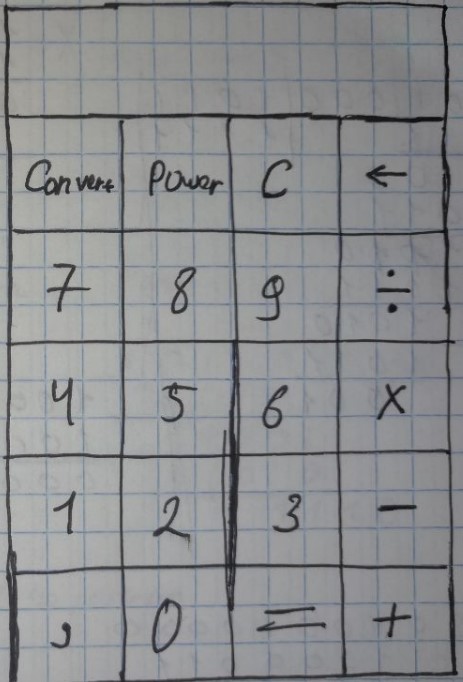 Convert Power C ←
7 8 9 ÷
4 5 6 X
1 2 3 −
, 0 = +